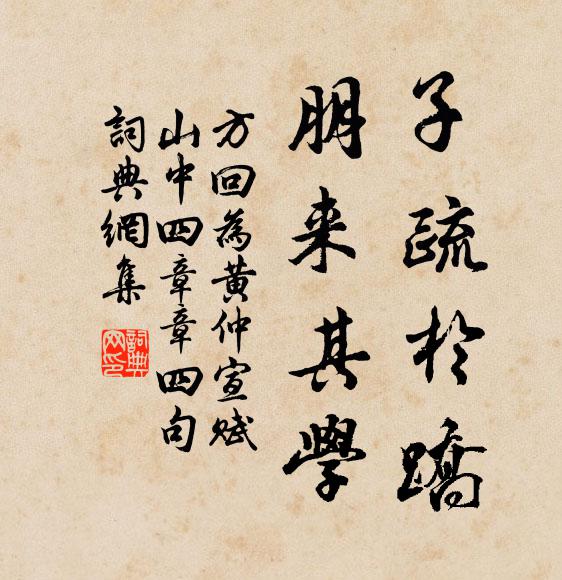 子疏於蹻
朋来其學
方回為黃仲宣賦
山中四章章四句
詞典網集
詞典网印